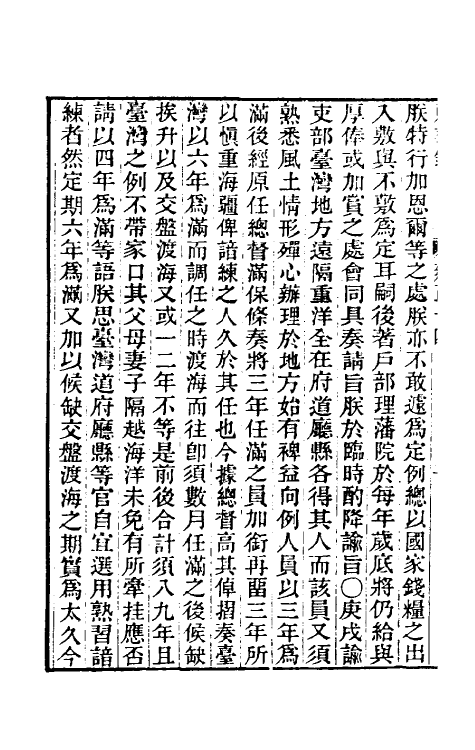 朕特行加恩爾等之處朕亦不敢遽爲定例總以國家錢糧之出
入敷與不敷爲定耳嗣後著戶部理藩院於每年歲底將仍給與
厚俸或加賞之處會同具奏請旨朕於臨時酌降諭旨〇庚戌諭
吏部臺灣地方遠隔重洋全在府道廳縣各得其人而該員又須
熟悉風土情形殫心辦理於地方始有裨益向例人員以三年爲
滿後經原任總督滿保條奏將三年任滿之員加銜再留三年所
以愼重海疆俾諳練之人久於其任也今據總督高其倬摺奏臺
灣以六年爲滿而調任之時渡海而往卽須數月任滿之後候缺
挨升以及交盤渡海又或一二年不等是前後合計須八九年且
臺灣之例不帶家口其父母妻子隔越海洋未免有所牽挂應否
請以四年爲滿等語朕思臺灣道府廳縣等官自宜選用熟習諳
練者然定期六年爲滿又加以候缺交盤渡海之期實爲太久今